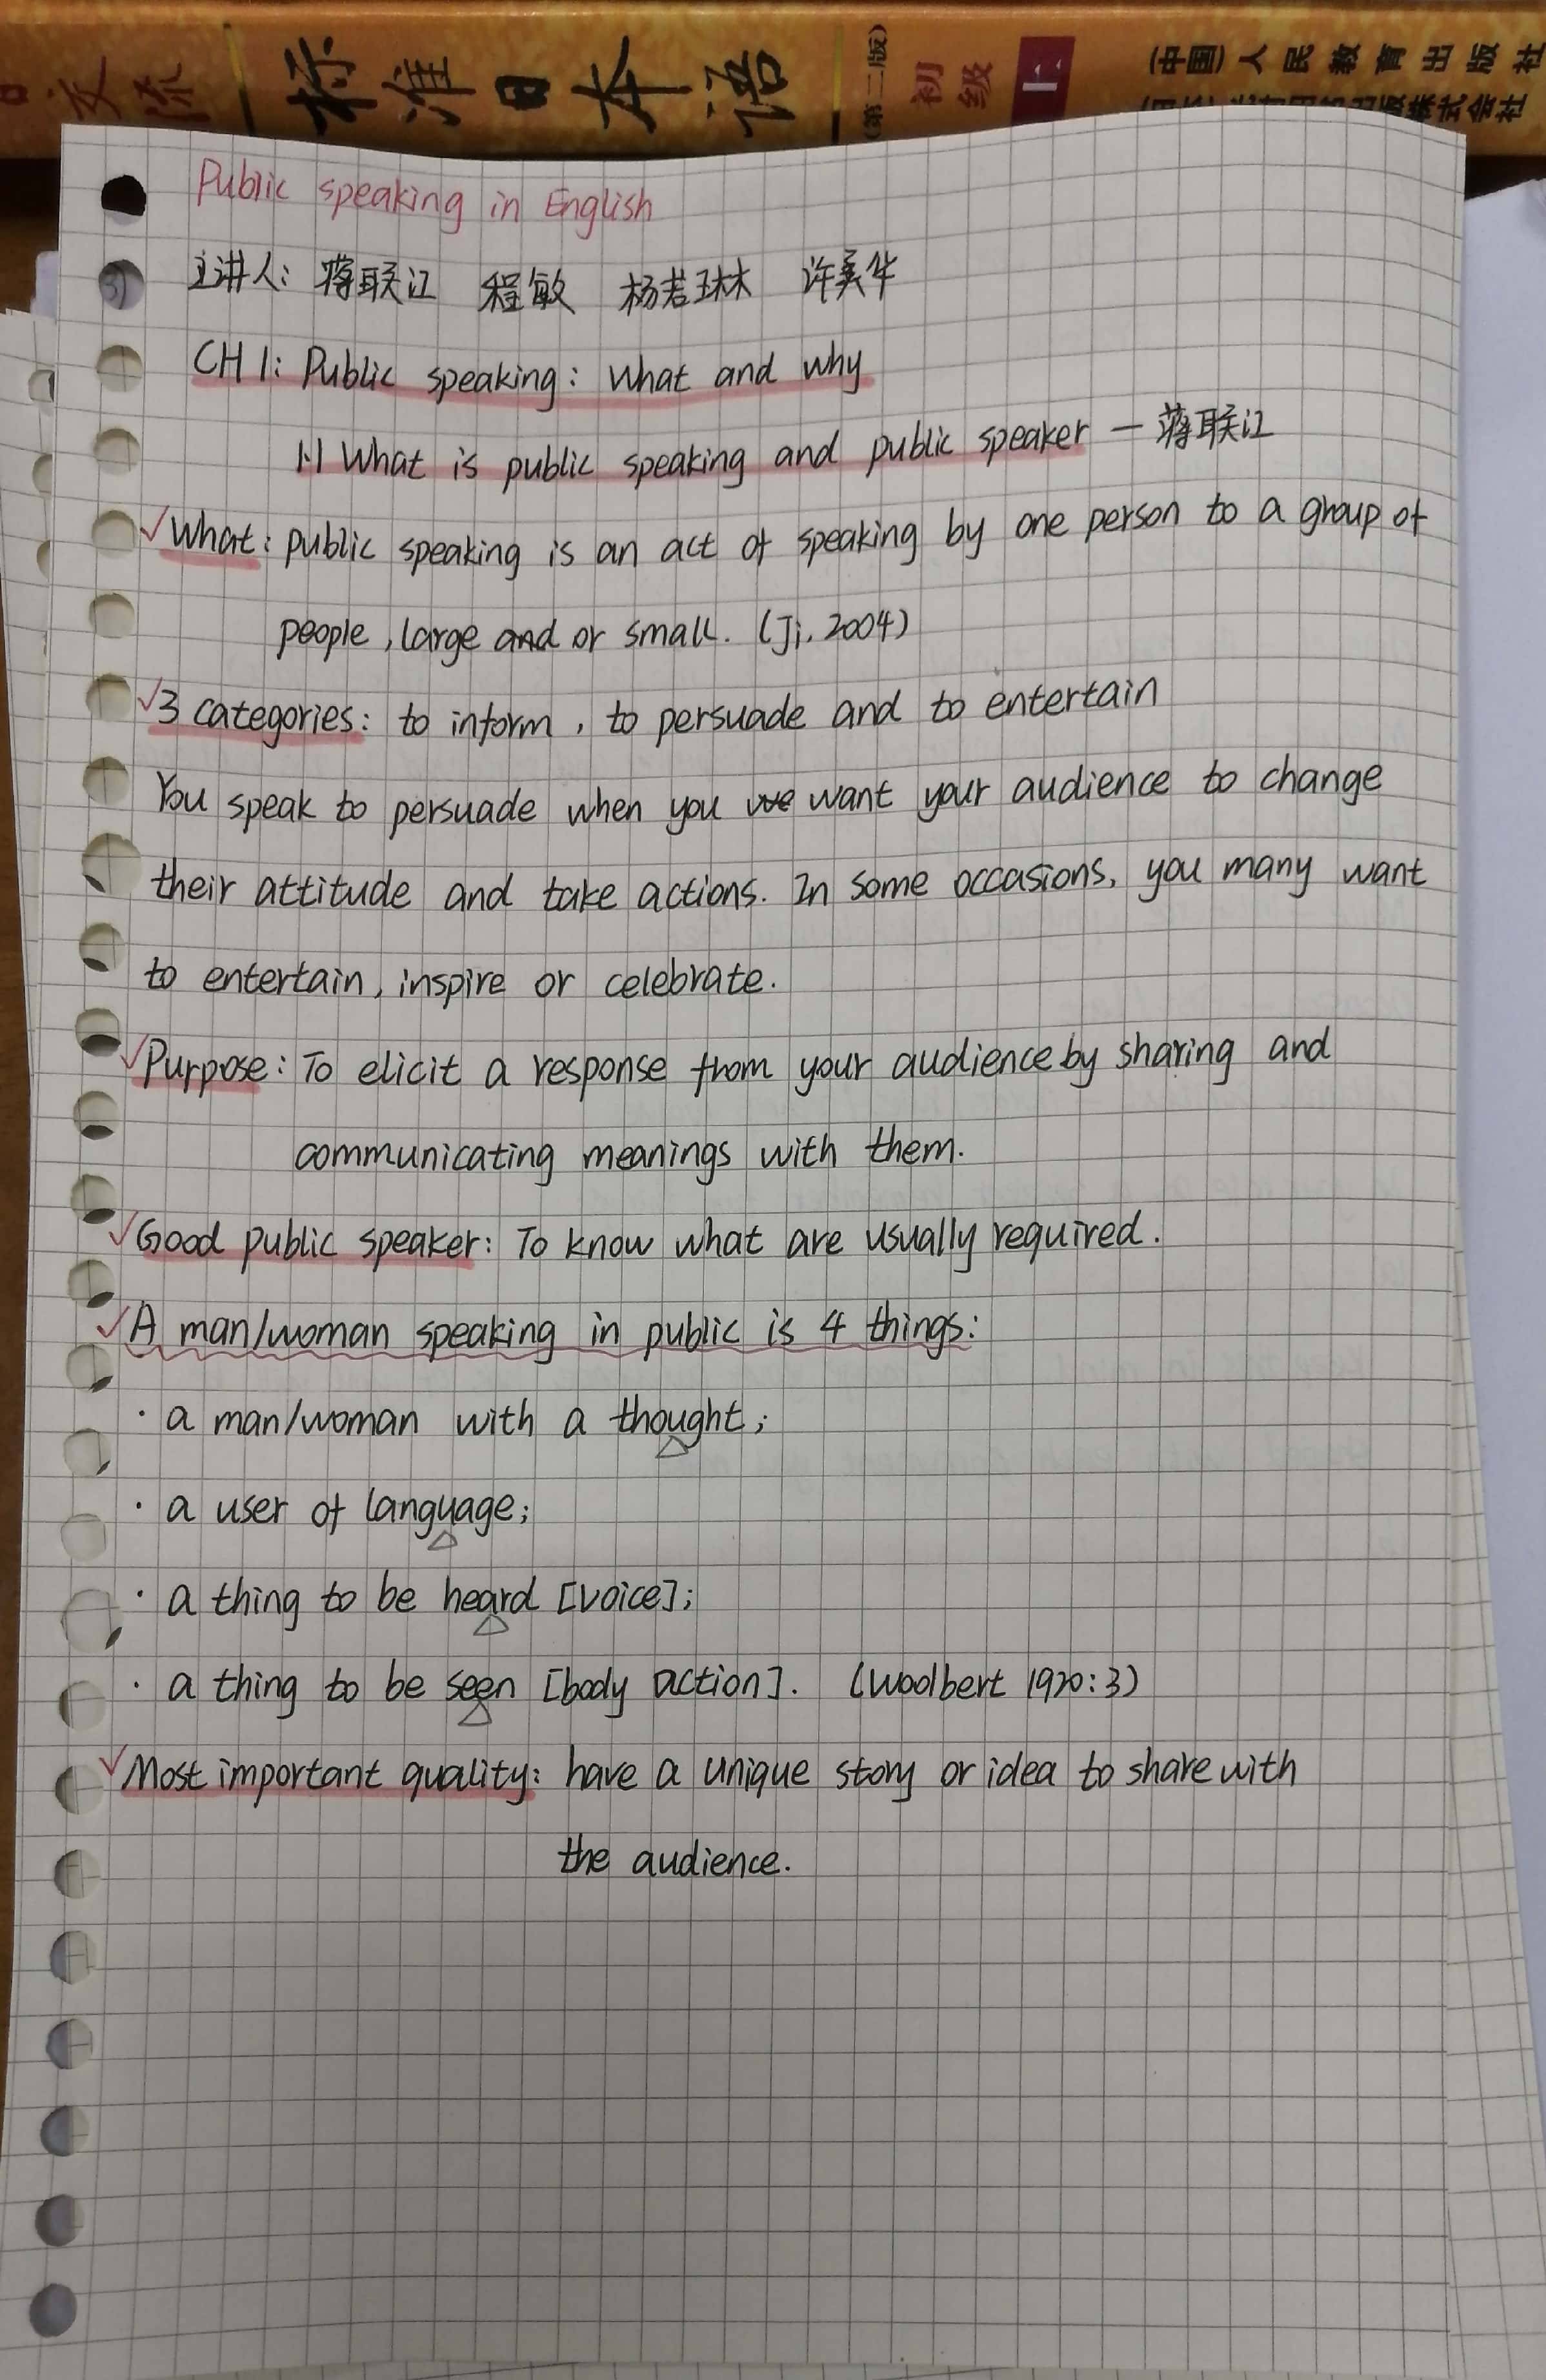 交流
标准日本语
(第二版)
初级
上
(中国)人民教育出版社
出版株式会社
Public speaking in English
主讲人: 蒋联江 程敏 杨若琳 许美华
CH 1: Public speaking: What and why
1.1 What is public speaking and public speaker — 蒋联江
✓What: public speaking is an act of speaking by one person to a group of
people, large and or small. (Ji, 2004)
✓3 categories: to inform, to persuade and to entertain
You speak to persuade when you we want your audience to change
their attitude and take actions. In some occasions, you many want
to entertain, inspire or celebrate.
✓Purpose: To elicit a response from your audience by sharing and
communicating meanings with them.
✓Good public speaker: To know what are usually required.
✓A man/woman speaking in public is 4 things:
· a man/woman with a thought;
· a user of language;
· a thing to be heard [voice];
· a thing to be seen [body action]. (Woolbert 1920:3)
✓Most important quality: have a unique story or idea to share with
the audience.